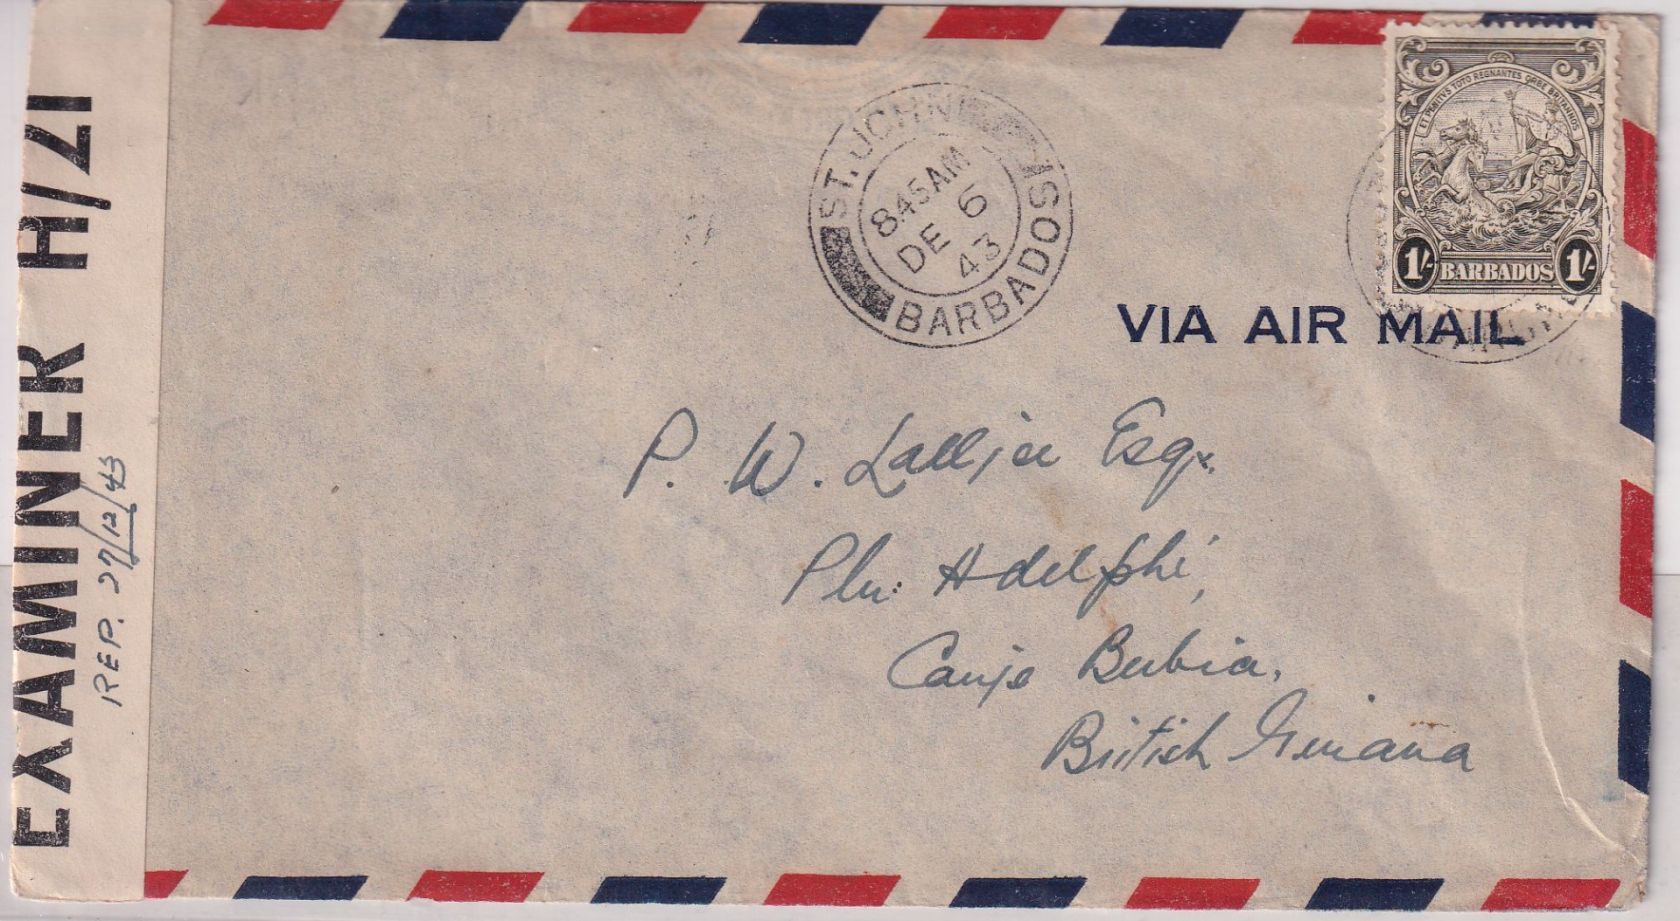 EXAMINER H/21
REP. 27/12/43
ST. JOHN
8 45 AM
DE 6
43
BARBADOS
ET PENITVS TOTO REGNANTES ORBE BRITANNOS
1/- BARBADOS 1/-
VIA AIR MAIL
P. W. Esq.
Pln: Adelphi,
Canje Berbice,
British Guiana